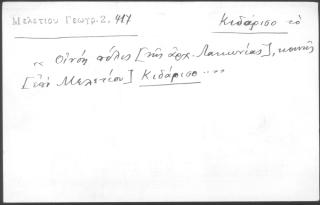 Μελετίου Γεωγρ. 2, 417
Κιδάρισο τὸ
" Οἰνόη πόλις [τῆς ἀρχ. Λακωνίας], κοινῶς
[ἐπὶ Μελετίου] Κιδάρισο ...."